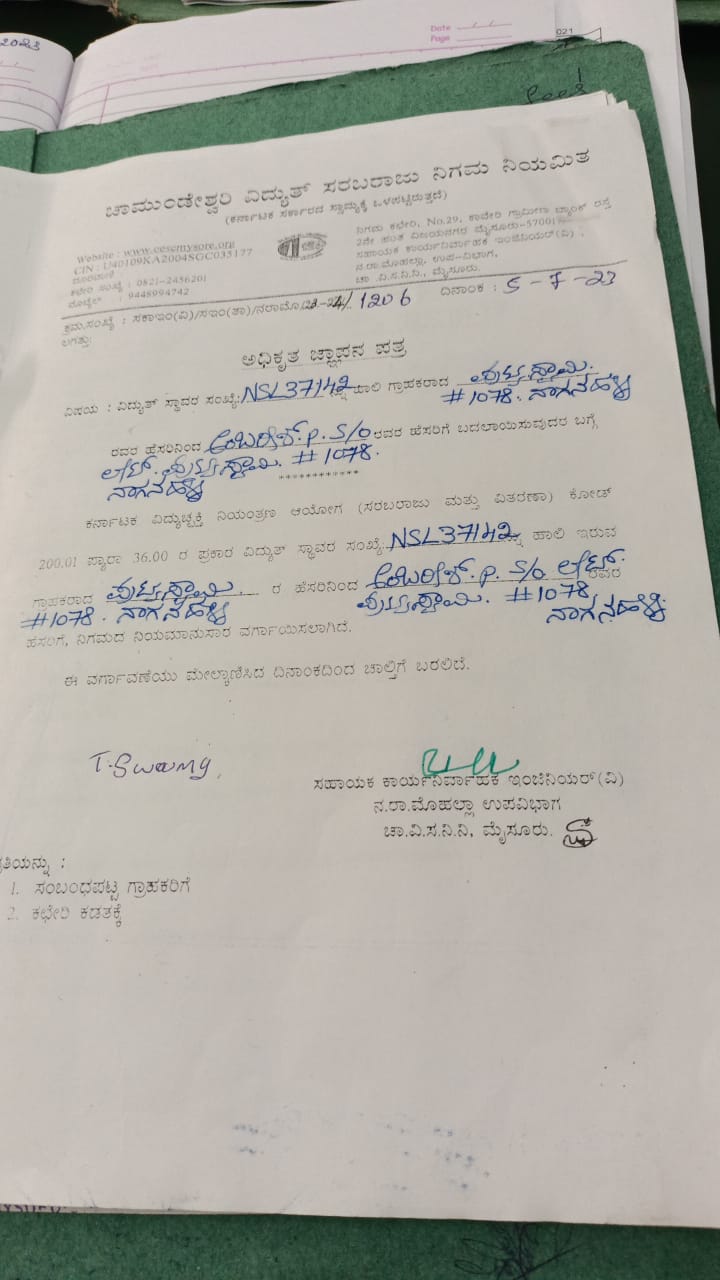 2023
Date
Page
021
ಚಾಮುಂಡೇಶ್ವರಿ ವಿದ್ಯುತ್ ಸರಬರಾಜು ನಿಗಮ ನಿಯಮಿತ
(ಕರ್ನಾಟಕ ಸರ್ಕಾರದ ಸ್ವಾಮ್ಯಕ್ಕೆ ಒಳಪಟ್ಟಿರುತ್ತದೆ)
Website : www.cescmysore.org
CIN : U40109KA2004SGC035177
ದೂರವಾಣಿ
ಕಛೇರಿ ಸಂಖ್ಯೆ : 0821-2456201
ಮೊಬೈಲ್ : 9448994742
ನಿಗಮ ಕಛೇರಿ, No.29, ಕಾವೇರಿ ಗ್ರಾಮೀಣ ಬ್ಯಾಂಕ್ ರಸ್ತೆ
2ನೇ ಹಂತ ವಿಜಯನಗರ ಮೈಸೂರು-57001
ಸಹಾಯಕ ಕಾರ್ಯನಿರ್ವಾಹಕ ಇಂಜಿನಿಯರ್(ವಿ) ,
ನ.ರಾ.ಮೊಹಲ್ಲಾ, ಉಪ-ವಿಭಾಗ,
ಚಾ .ವಿ.ಸ.ನಿ.ನಿ., ಮೈಸೂರು.
ಕ್ರಮ.ಸಂಖ್ಯೆ : ಸಕಾಇಂ(ವಿ)/ಸಇಂ(ತಾ)/ನರಾಮೊ/ 1206 ದಿನಾಂಕ : 5-7-23
ಲಗತ್ತು:
ಅಧಿಕೃತ ಜ್ಞಾಪನ ಪತ್ರ
ವಿಷಯ : ವಿದ್ಯುತ್ ಸ್ಥಾವರ ಸಂಖ್ಯೆ: NSL37142 ನ್ನು ಹಾಲಿ ಗ್ರಾಹಕರಾದ ಪುಟ್ಟಸ್ವಾಮಿ.
#1078. ನಾಗನಹಳ್ಳಿ
ರವರ ಹೆಸರಿನಿಂದ ಅಂಬರೀಶ್.P. S/o ರವರ ಹೆಸರಿಗೆ ಬದಲಾಯಿಸುವುದರ ಬಗ್ಗೆ
ಲೇಟ್. ಪುಟ್ಟಸ್ವಾಮಿ. #1078.
ನಾಗನಹಳ್ಳಿ
************
ಕರ್ನಾಟಕ ವಿದ್ಯುಚ್ಛಕ್ತಿ ನಿಯಂತ್ರಣ ಆಯೋಗ (ಸರಬರಾಜು ಮತ್ತು ವಿತರಣಾ) ಕೋಡ್
200.01 ಪ್ಯಾರಾ 36.00 ರ ಪ್ರಕಾರ ವಿದ್ಯುತ್ ಸ್ಥಾವರ ಸಂಖ್ಯೆ: NSL37142 ನ್ನು ಹಾಲಿ ಇರುವ
ಗ್ರಾಹಕರಾದ ಪುಟ್ಟಸ್ವಾಮಿ. ರ ಹೆಸರಿನಿಂದ ಅಂಬರೀಶ್.P. S/o ಲೇಟ್. ರವರ
#1078. ನಾಗನಹಳ್ಳಿ ಪುಟ್ಟಸ್ವಾಮಿ. #1078 ನಾಗನಹಳ್ಳಿ
ಹೆಸರಿಗೆ, ನಿಗಮದ ನಿಯಮಾನುಸಾರ ವರ್ಗಾಯಿಸಲಾಗಿದೆ.
ಈ ವರ್ಗಾವಣೆಯು ಮೇಲ್ಕಾಣಿಸಿದ ದಿನಾಂಕದಿಂದ ಚಾಲ್ತಿಗೆ ಬರಲಿದೆ.
T.Swamy
ಸಹಾಯಕ ಕಾರ್ಯನಿರ್ವಾಹಕ ಇಂಜಿನಿಯರ್(ವಿ)
ನ.ರಾ.ಮೊಹಲ್ಲಾ ಉಪವಿಭಾಗ
ಚಾ.ವಿ.ಸ.ನಿ.ನಿ, ಮೈಸೂರು.
ಪ್ರತಿಯನ್ನು :
1. ಸಂಬಂಧಪಟ್ಟ ಗ್ರಾಹಕರಿಗೆ
2. ಕಛೇರಿ ಕಡತಕ್ಕೆ